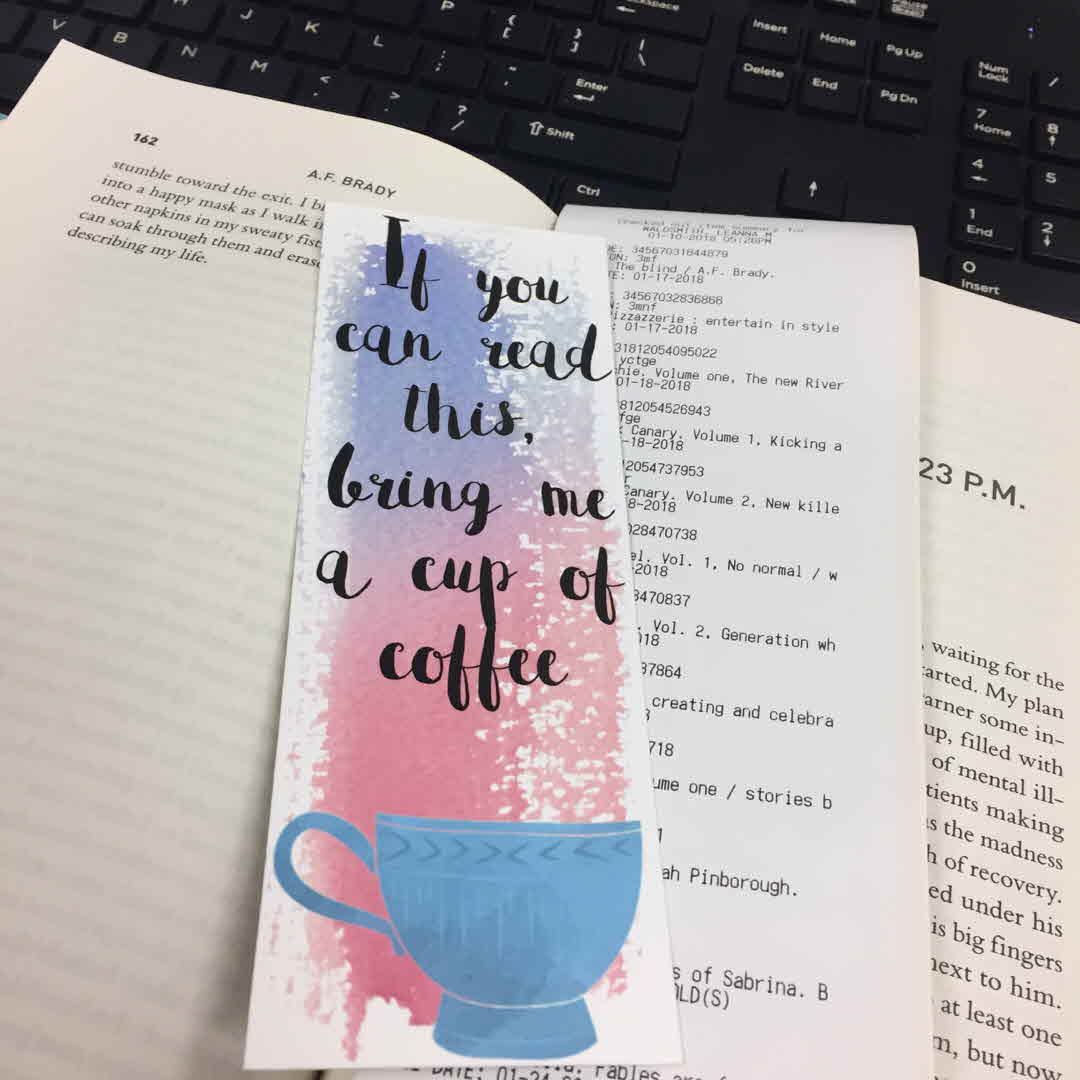 Backspace
Pause
Break
J
K
L
P
{
[
}
]
|
\
Insert
Home
Pg Up
Delete
End
Pg Dn
Num
Lock
/
V
B
N
M
<
,
>
.
?
/
:
;
"
'
Enter
Shift
Ctrl
7
Home
8
4
5
1
End
2
0
Insert
162
A.F. BRADY
stumble toward the exit. I
into a happy mask as I walk
other napkins in my sweaty
can soak through them and
describing my life.
If you
can read
this,
bring me
a cup of
coffee
WALDSMITH, LEANNA M
01-10-2018 05:26PM
345673031844879
3mf
The blind / A.F. Brady.
01-17-2018
34567032836868
3mnf
: entertain in style
01-17-2018
31812054095022
yctge
Volume one, The new River
01-18-2018
812054526943
Canary. Volume 1, Kicking a
-18-2018
2054737953
Canary. Volume 2, New kille
8-2018
028470738
Vol. 1, No normal / w
2018
8470837
Vol. 2, Generation wh
018
37864
creating and celebra
718
one / stories b
Pinborough.
of Sabrina. B
OLD(S)
DATE: 01-24
23 P.M.
waiting for the
My plan
some in-
up, filled with
of mental ill-
making
the madness
of recovery.
under his
is big fingers
next to him.
at least one
but now